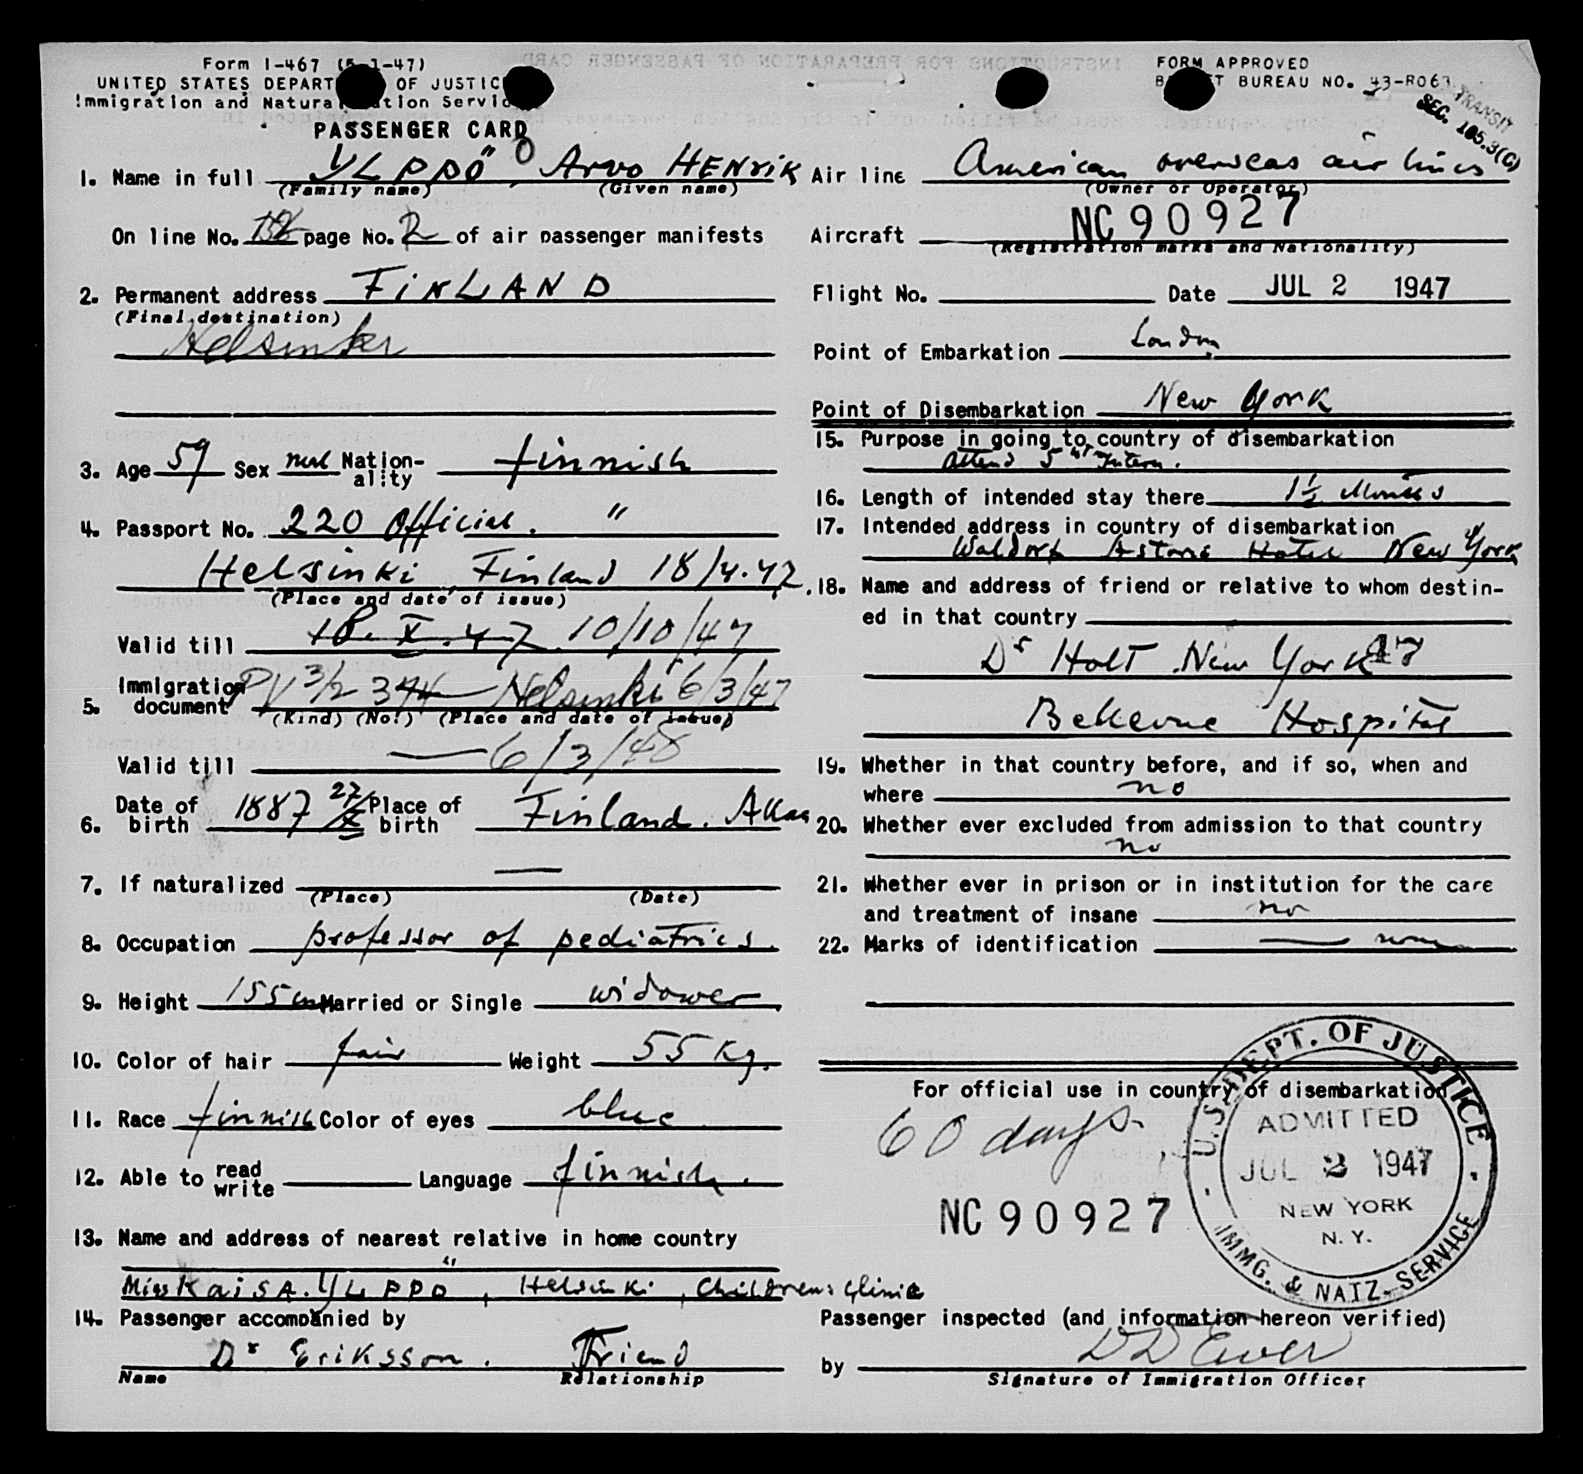 Form I-467 (5-1-47)
UNITED STATES DEPART OF JUSTIC
Immigration and Natura tion Servic
FORM APPROVED
B T BUREAU NO. 43-R063
TRANSIT
SEC. 165.3(G)
PASSENGER CARD
1. Name in full YLPPÖ, Arvo HENrIK
(Family name) (Given name)
On line No. page No. 2 of air passenger manifests
2. Permanent address FINLAND
(Final destination)
Helsinki
3. Age 59 Sex Nationality finnish
4. Passport No. 220 Official. "
Helsinki, Finland 18/4.47.
(Place and date of issue)
Valid till 18.X.47 10/10/47
5. Immigration document PV 3/2 394 Helsinki 6/3/47
(Kind) (No.) (Place and date of issue)
Valid till — 6/3/48
6. Date of birth 1887 27/X Place of birth Finland. Akaa
7. If naturalized —
(Place) (Date)
8. Occupation professor of pediatrics.
9. Height 155 cm Married or Single widower
10. Color of hair fair Weight 55 Kg.
11. Race finnish Color of eyes blue
12. Able to read write Language finnish.
13. Name and address of nearest relative in home country
Miss KaisA. YLPPÖ, Helsinki, Childrens Clinic
14. Passenger accompanied by
Dr Eriksson. Friend
Name Relationship
Air line American overseas air lines
(Owner or Operator)
Aircraft NC 90927
(Registration marks and Nationality)
Flight No. Date JUL 2 1947
Point of Embarkation London
Point of Disembarkation New York
15. Purpose in going to country of disembarkation
attend 5 Intern.
16. Length of intended stay there 1½ Months
17. Intended address in country of disembarkation
Waldorf Astoria Hotel New York
18. Name and address of friend or relative to whom destin-
ed in that country
Dr Holt New York 17
Bellevue Hospital
19. Whether in that country before, and if so, when and
where no
20. Whether ever excluded from admission to that country
no
21. Whether ever in prison or in institution for the care
and treatment of insane no
22. Marks of identification — none
For official use in country of disembarkation
60 days.
NC 90927
U.S. DEPT. OF JUSTICE
ADMITTED
JUL 2 1947
NEW YORK
N. Y.
IMMG. & NATZ. SERVICE
Passenger inspected (and information hereon verified)
by
Signature of Immigration Officer